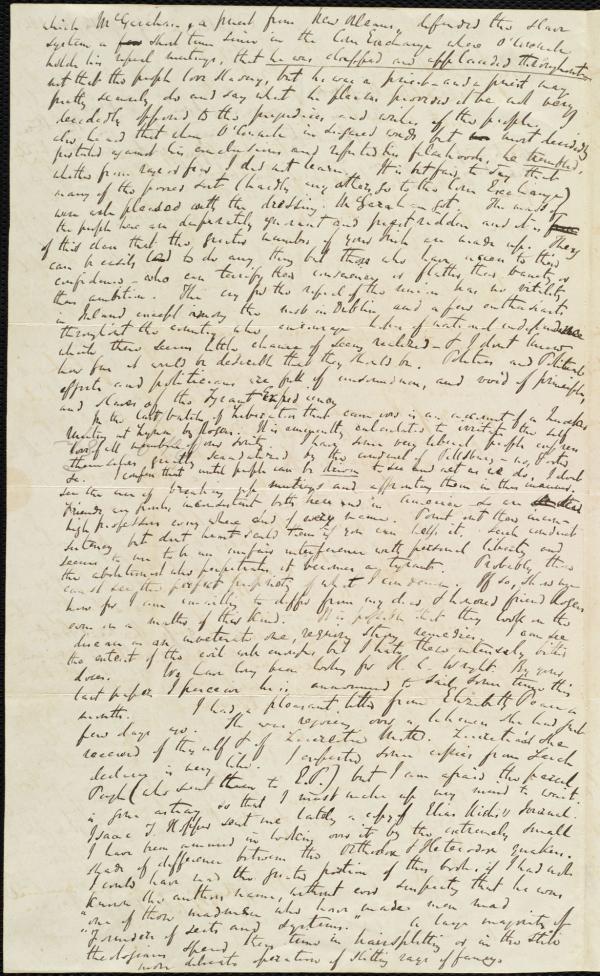 which McGarahan, a priest from New Orleans, defended the slave
system a short time since in the Corn Exchange where O'Connell
holds his repeal meetings, that he was clapped and applauded throughout
not that the people love slavery, but he was a priest and a priest may
pretty securely do and say what he pleases provided it be not very
decidedly opposed to the prejudices and wishes of the people. I
also heard that when O'Connell in disguised words, but most decidedly
protested against his conclusions and refuted his falsehoods, he trembled,
whether from rage or fear, I did not learn. It is but fair to say that
many of the poorer sort (hardly any others go to the Corn Exchange)
were well pleased with the dressing McGarahan got. The mass of
the people here are desperately ignorant and priestridden and it is
of this class that the greater number of your Irish are made up. They
can be easily led to do any thing by those who have access to their
confidence – who can terrify their consciences or flatter their vanity or
their ambition. This cry for the repeal of the union has no vitality
in Ireland except among the mob in Dublin and a few enthusiasts
throughout the country who encourage ideas of national independence
which there seems little chance of seeing realized – & I don't know
how far it would be desirable that they should be. Politics and Political
efforts and politicians are full of unsoundness, and void of principle,
and slaves of the tyrant Expediency
In the last batch of Liberators that came over is an account of a Quaker
Meeting at Lynn by Rogers. It is eminently calculated to irritate the self
love of all members of our Society. I have some very liberal people
themselves greatly scandalized by the conduct of Pillsbury
&c. I confess that until people can be driven to see and act as we do I don't
see the use of breaking up meetings and affronting them in this manner.
Friends are pretty inconsistent both here and in America – so are
high professors every where and of every name. Point out their inconsistency
but don't scold them if you can help it. Such conduct
seems to me to be an unfair interference with personal liberty and
the abolitionist who perpetrates it becomes a tyrant. Probably they
can't see the perfect propriety of what I condemn. If so, show me
how for I am unwilling to differ from my dear & honored friend Rogers
even in a matter of this kind. It is possible that they look on the
disease as an inveterate one, requiring strong remedies. I can see
the extent of the evil well enough but I hate these intensely bitter
doses. We have long been looking for H. C. Wright. By your
last paper I perceive he is announced to sail some time this
month. I had a pleasant letter from Elizabeth Pease a
few days ago. She was rejoicing over a likeness she had just
received of thyself & of Lucretia Mott. Lucretia's she
declares is very like. I expected some copies from Sarah
Pugh (who sent them to E.P.) but I am afraid this parcel
is gone astray so that I must make up my mind to wait.
Isaac T. Hopper sent me lately a copy of Elias Hicks's Journal.
I have been amused in looking over it by the extremely small
shade of difference between the Orthodox & Heterodox Quakers.
I could have read the greater portion of this book, if I had not
known the authors name, without ever suspecting that he was
"one of those madmen who have made men mad
"Founders of sects and systems." A large majority of
theologians spend their time in hairsplitting or in the still
more delicate operation of slitting rays of fancy